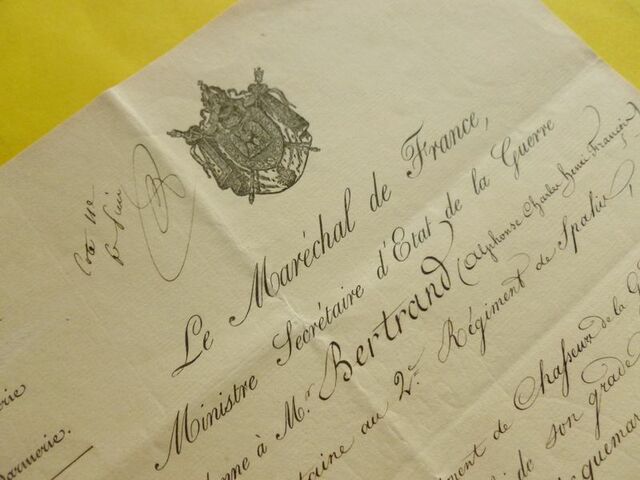 Cote 11e
Le Maréchal de France,
Ministre Secrétaire d'Etat de la Guerre
nne à Mr. Bertrand (Alphonse Charles Henri François)
taine au 2e Régiment de Spahis,
ment de Chasseurs de la G
de son grade
quemar
rie
darmerie.